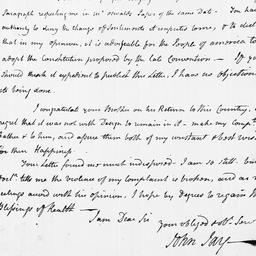 Paragraph respecting me in Mr. Oswalds Paper of the same Date. You have
authority to deny the change of Sentiments it imputes to me, & to declare
that in my opinion, it is advisable for the People of america to
adopt the Constitution proposed by the late Convention — If you
should think it expedient to publish this Letter, I have no objections to
its being done.
I congratulate your Brother on his Return to this Country, &
regret that it was not with Design to remain in it — make my Compts to
& to him, and assure them both of my constant & best wishes
for their Happiness.
Your Letter found me much indisposed — I am so still. but
tells me the violence of my complaint is broken, and as my
feelings accord with his opinion. I hope by degrees to regain the
Blessings of Health —
I am Dear Sir
your obliged & obt. Servt
John Jay